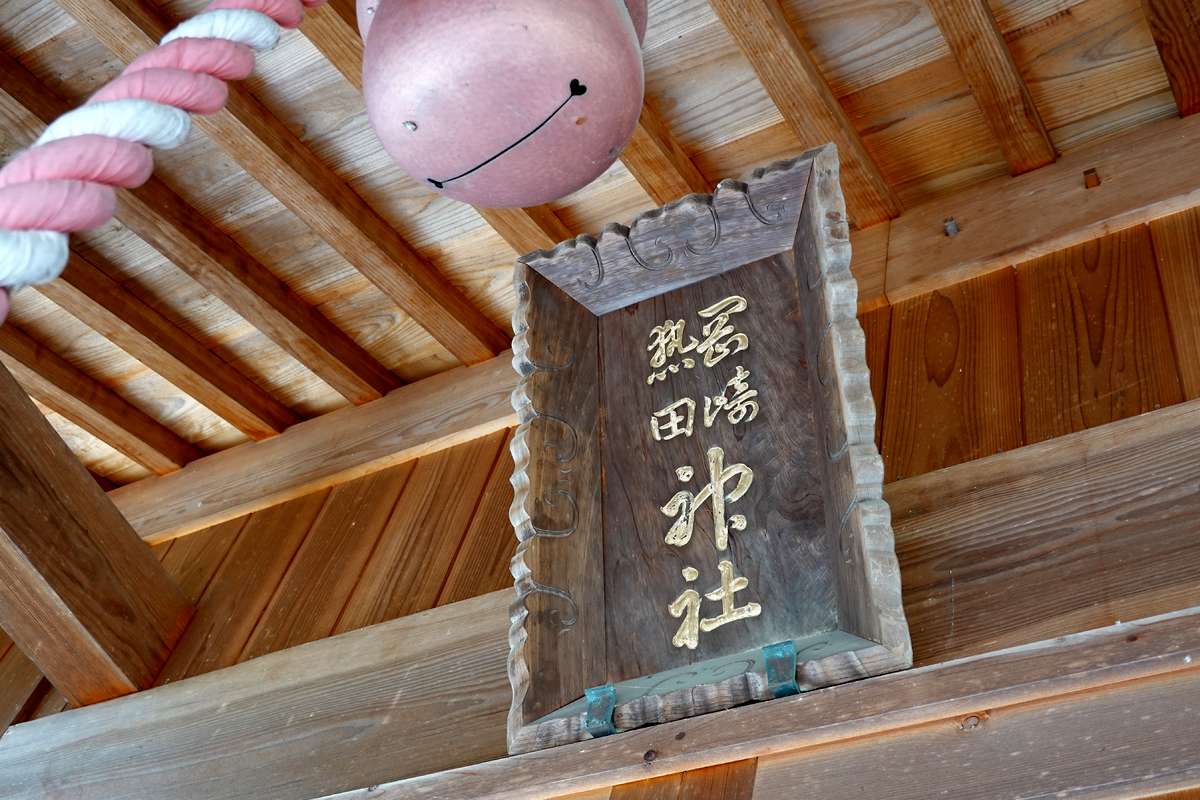 岡崎
熱田
神社